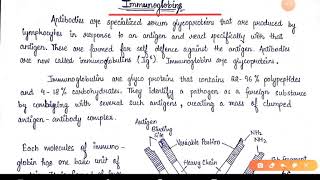 Immunoglobins
Antibodies are specialized serum glycoproteins that are produced by
lymphocytes in response to an antigen and react specifically with that
antigen. These are formed for self defence against the antigen. Antibodies
are now called immunoglobulins (Ig's). Immunoglobins are glycoproteins.
Immunoglobulins are glyco proteins that contains 82-96% polypeptides
and 4-18% carbohydrates. They identify a pathogen as a foreign substance
by combining with several such antigens, creating a mass of clumped
antigen-antibody complex.
Antigen
Binding
Site
Variable Portion
NH₂
NH₂
Heavy Chain
Each molecules of immuno-
globin has one basic unit of